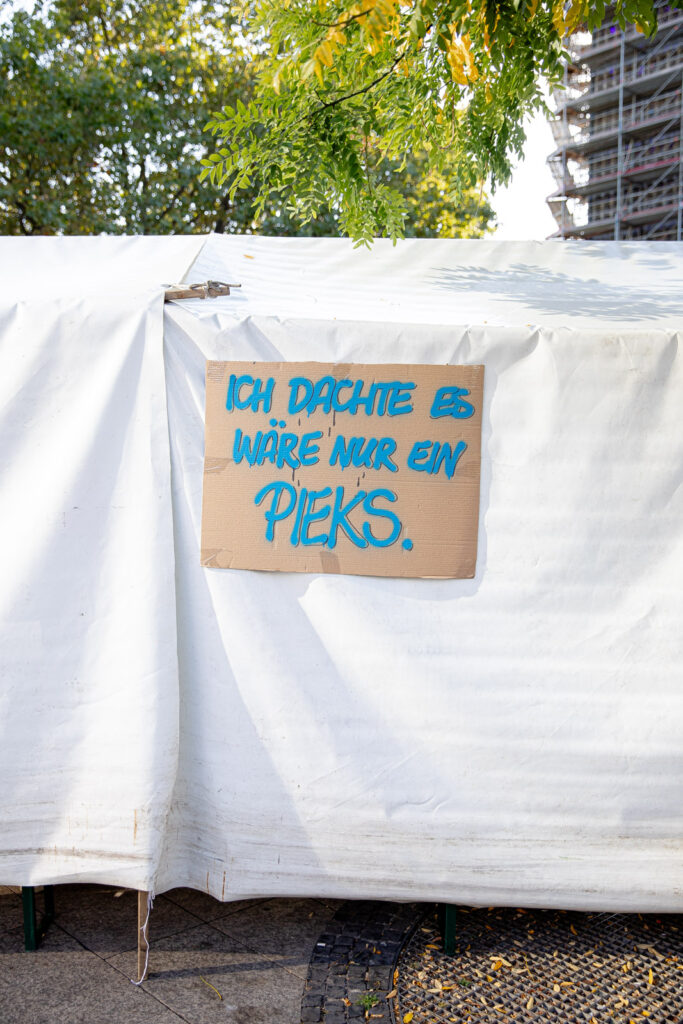 ICH DACHTE ES
WÄRE NUR EIN
PIEKS.